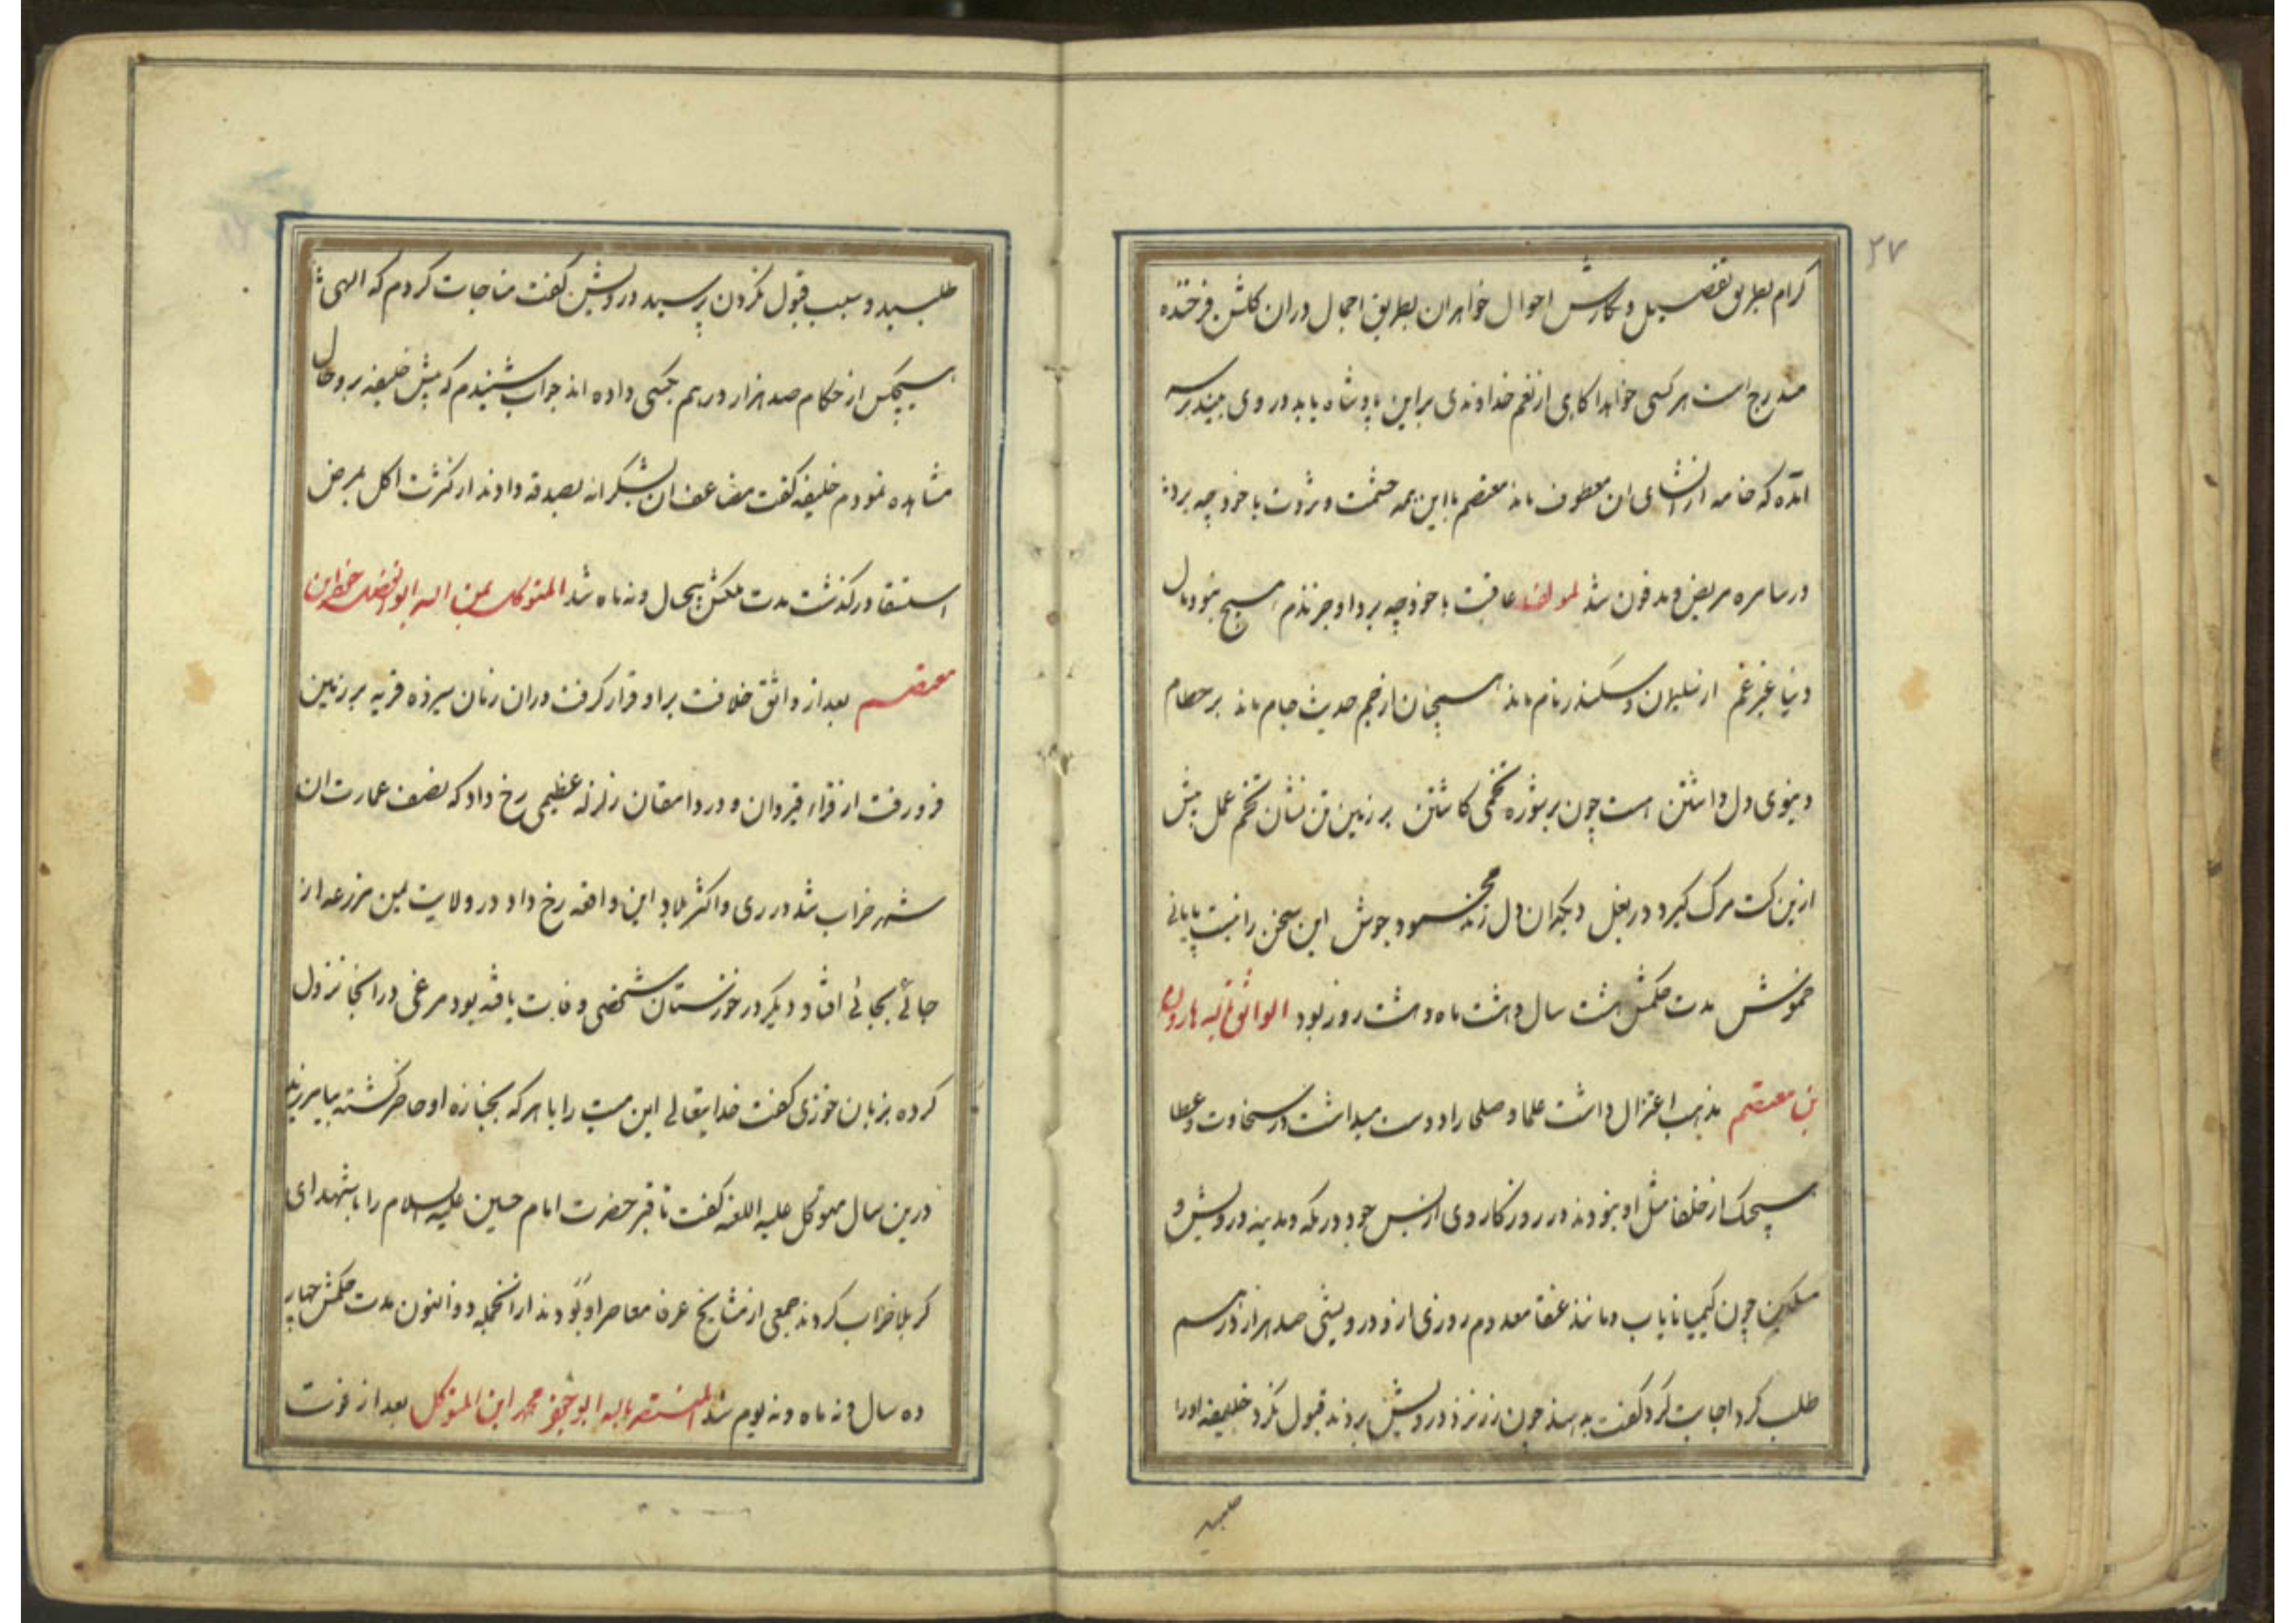 ۲۷
کرام بطریق تفصیل و نگارش احوال خواهران بطریق اجمال دران گلشن فرخنده
مندرج است هر کسی خواهد اکاهی از نعم خداوندی براین پادشاه یابد در وی بیند برسر
امده که خامه از انشای ان معطوف ماند معتصم با این همه حشمت و ثروت با خود چه برد
در سامره مریض و مدفون شد لمولفه عاقبت با خود چه برد او جز ندم هیچ نبود مال
دنیا غیر غم از سلیمان و سکندر نام ماند همچنان از جم حدیث جام ماند بر حطام
دنیوی دل داشتن هست چون بر شوره تخمی کاشتن بر زمین تن نشان تخم عمل پیش
ازین کت مرک کیرد در بغل دیکران دل زند مخمسود جوش این سخن را نیست پایانی
خموش مدت حکمش هشت سال و هشت ماه و هشت روز بود الواثق بالله هارون
بن معتصم مذهب اعتزال داشت علما و صلحا را دوست میداشت در سخاوت و عطا
هیچیک از خلفا مثل او نبودند در روزکار وی از بس جود در مکه و مدینه درویش و
مسکین چون کیمیا نایاب و مانند عنقا معدوم روزی ازو درویشی صد هزار درهم
طلب کرد اجابت کرد کفت بدهند چون زر نزد درویش بردند قبول نکرد خلیفه اورا
طلبید
طلبید و سبب قبول نکردن پرسید درویش کفت مناجات کردم که الهی
هیچکس از حکام صد هزار درهم بکسی داده اند جواب شنیدم که پیش خلیفه برو حال
مشاهده نمودم خلیفه کفت مضاعف ان بشکرانه بصدقه دادند از کثرت اکل بمرض
استسقا درکذشت مدت ملکش پنجسال و نه ماه شد المتوکل بمن الله ابوالفضل جعفر ابن
معتصم بعد از واثق خلافت براو قرار کرفت دران زمان سیزده قریه بر زمین
فرو رفت از قراء قیروان و در دامغان زلزله عظیمی رخ داد که نصف عمارت ان
شهر خراب شد در ری و اکثر بلاد این واقعه رخ داد در ولایت یمن مزرعه از
جائے بجائے افتاد دیکر در خوزستان شخصی وفات یافته بود مرغی درانجا نزول
کرده بزبان خوزی کفت خدایتعالی این میت را با هرکه بجنازه او حاضر کشته بیامرزید
درین سال متوکل علیه اللعنه کفت تا قبر حضرت امام حسین علیه السلام را با شهدای
کربلا خراب کردند جمعی از مشایخ عرفا معاصر او بودند از انجمله ذوالنون مدت حکمش چهار
ده سال و نه ماه و نه یوم شد المنتصر بالله ابو جعفر محمد ابن المتوکل بعد از فوت